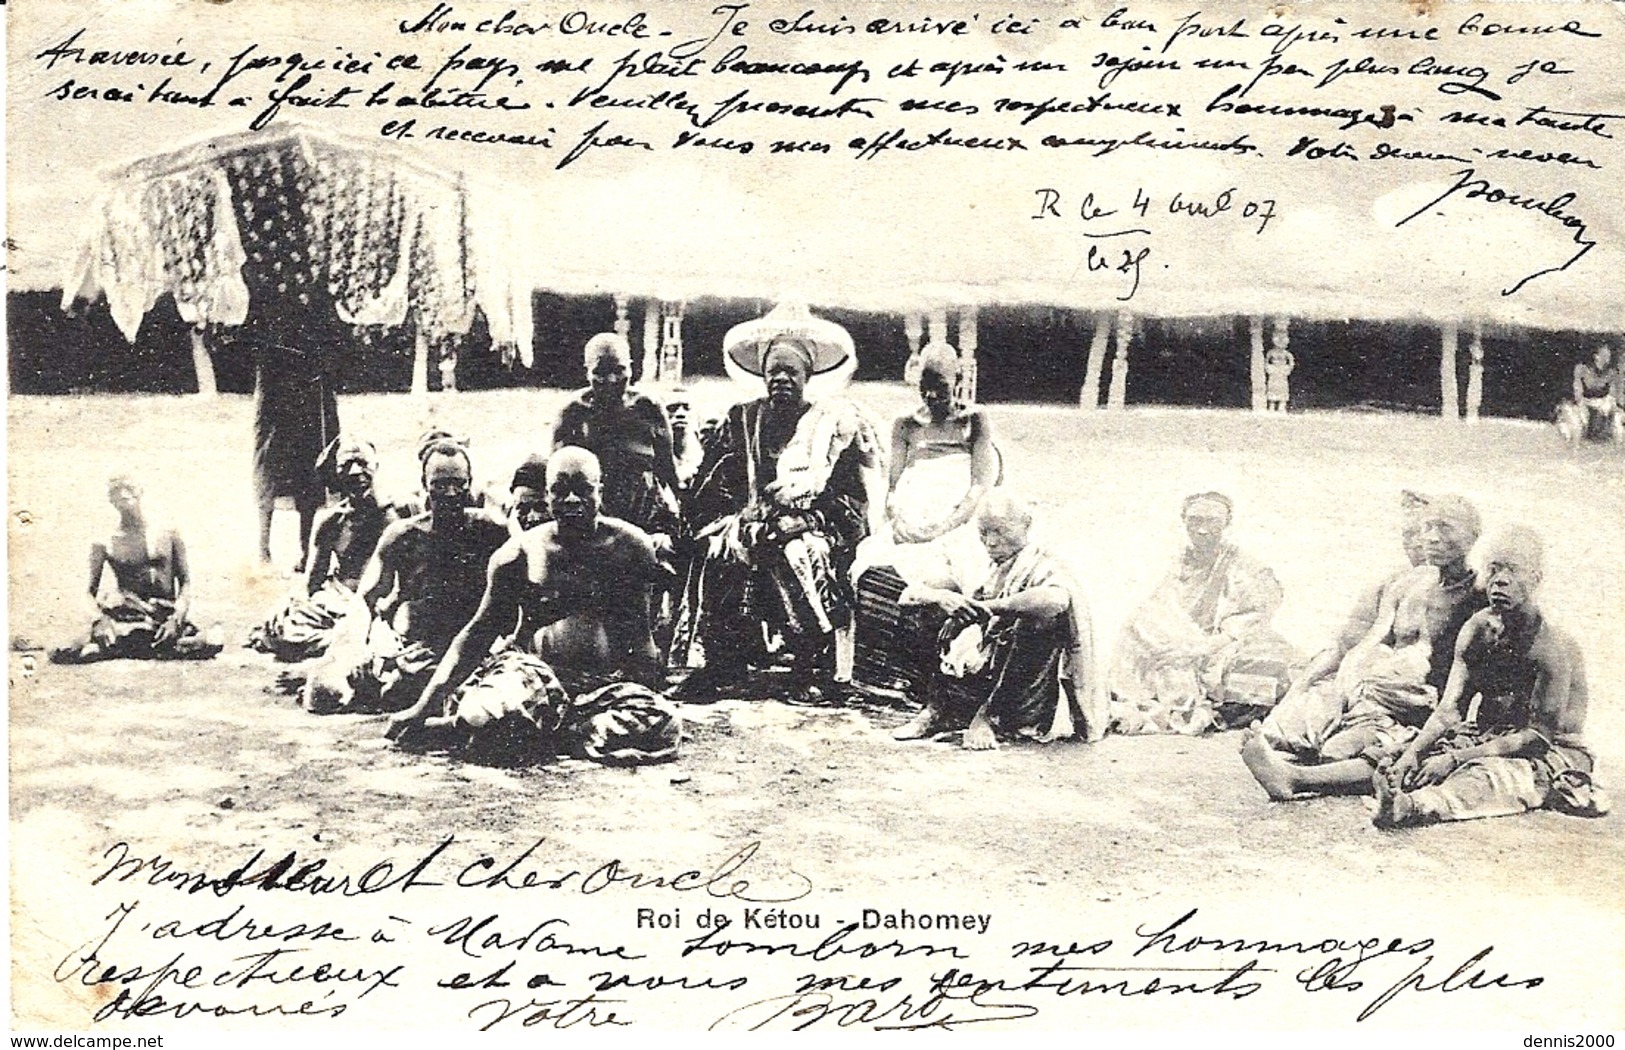 Mon cher Oncle - Je suis arrivé ici à bon port après une bonne
traversée, jusqu'ici ce pays me plait beaucoup et après un séjour un peu plus long je
serai tout à fait habitué. Veuillez presenter mes respectueux hommages à ma tante
et recevoir pour vous mes affectueux compliments. Votre neveu
R le 4 avril 07
le 25.
Monsieur et cher Oncle
Roi de Kétou - Dahomey
J'adresse à Madame Lomborn mes hommages
respectueux et a vous mes sentiments les plus
devoués Votre
delcampe.net
dennis2000